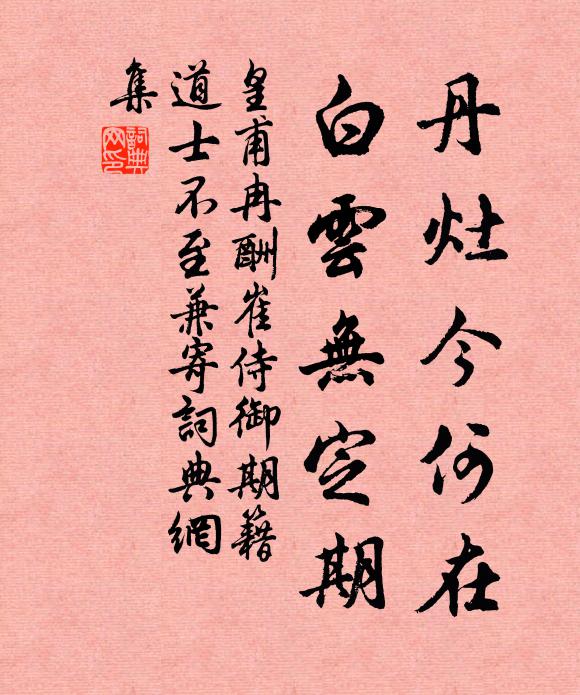 丹灶今何在
白雲無定期
皇甫冉酬崔侍御期籍
道士不至兼寄詞典網
集
詞典
网印